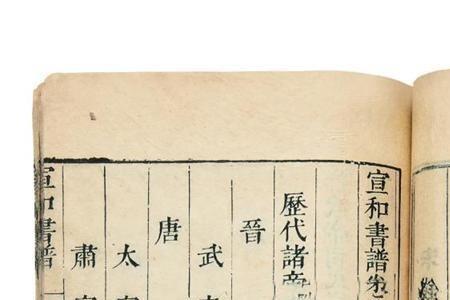 宣和書譜
歷代諸帝
晉
武
唐
太
肅
宣和書譜